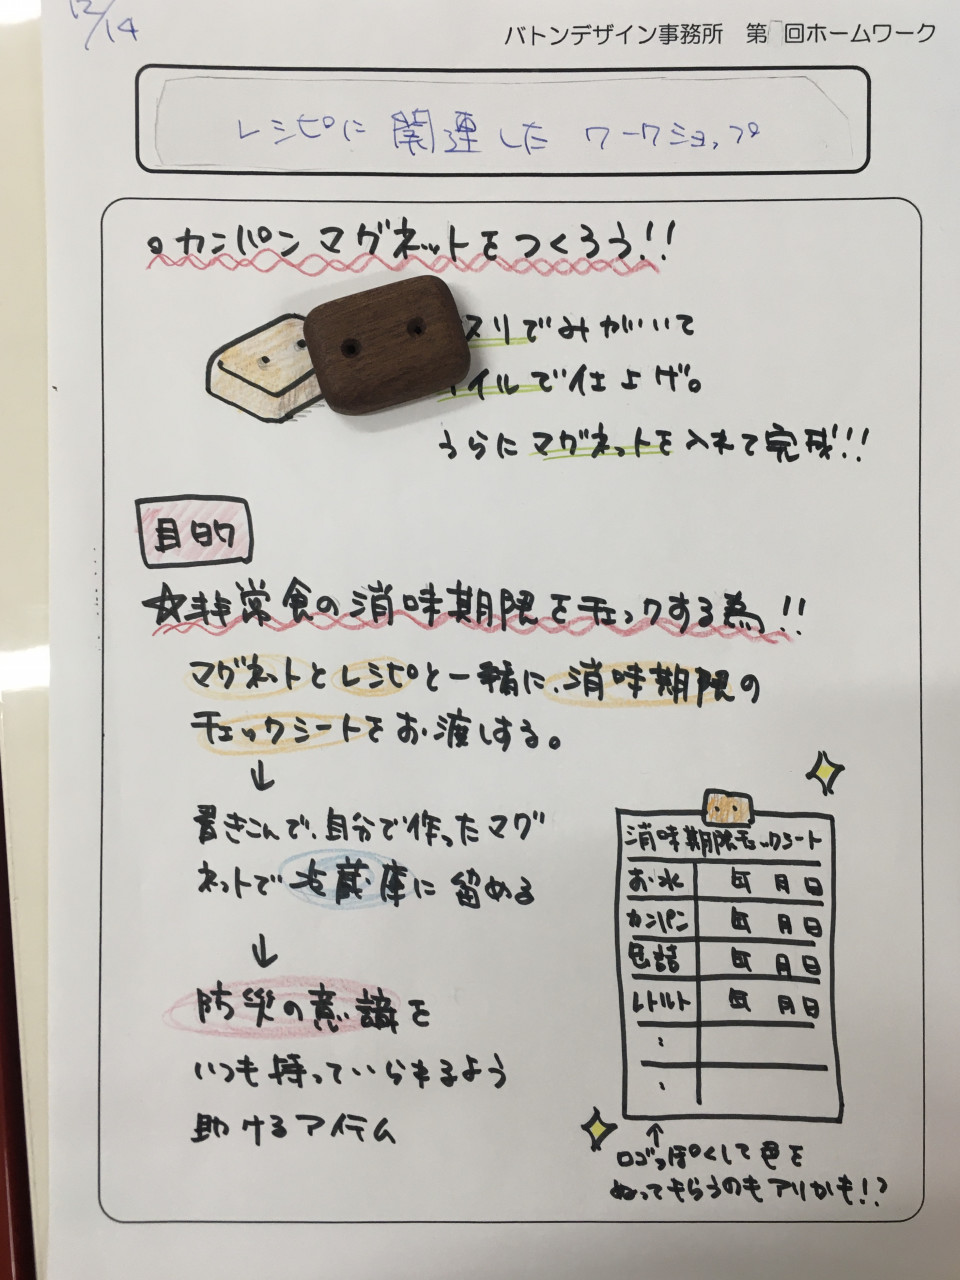 12/14
バトンデザイン事務所 第 回ホームワーク
レシピに関連した ワークショップ
。カンパンマグネットをつくろう!!
スリでみがいて
イルで仕上げ。
うらにマグネットを入れて完成!!!
目的
☆非常食の消味期限をチェックする為!!
マグネットとレシピと一緒に、消味期限の
チェックシートをお渡しする。
↓
書きこんで、自分で作ったマグ
ネットで冷蔵庫に留める
↓
防災の意識を
いつも持っていられるよう
助けるアイテム
消味期限チェックシート
お水 年 月 日
カンパン 年 月 日
缶詰 年 月 日
レトルト 年 月 日
:
:
↑
ロゴっぽくして色を
ぬってもらうのもアリかも!?